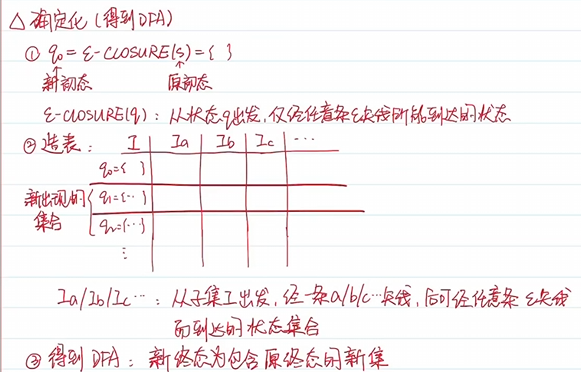 △ 确定化 (得到DFA)
① q₀ = ε-CLOSURE(s) = { }
新初态 原初态
ε-CLOSURE(q): 从状态q出发, 仅经任意条ε矢线所能到达的状态
② 造表: I Ia Ib Ic …
q₀={ }
新出现的集合 q₁={…}
q₂={…}
⋮
Ia/Ib/Ic…: 从子集I出发, 经一条a/b/c…矢线, 后可经任意条ε矢线
而到达的状态集合
③ 得到 DFA: 新终态为包含原终态的新集